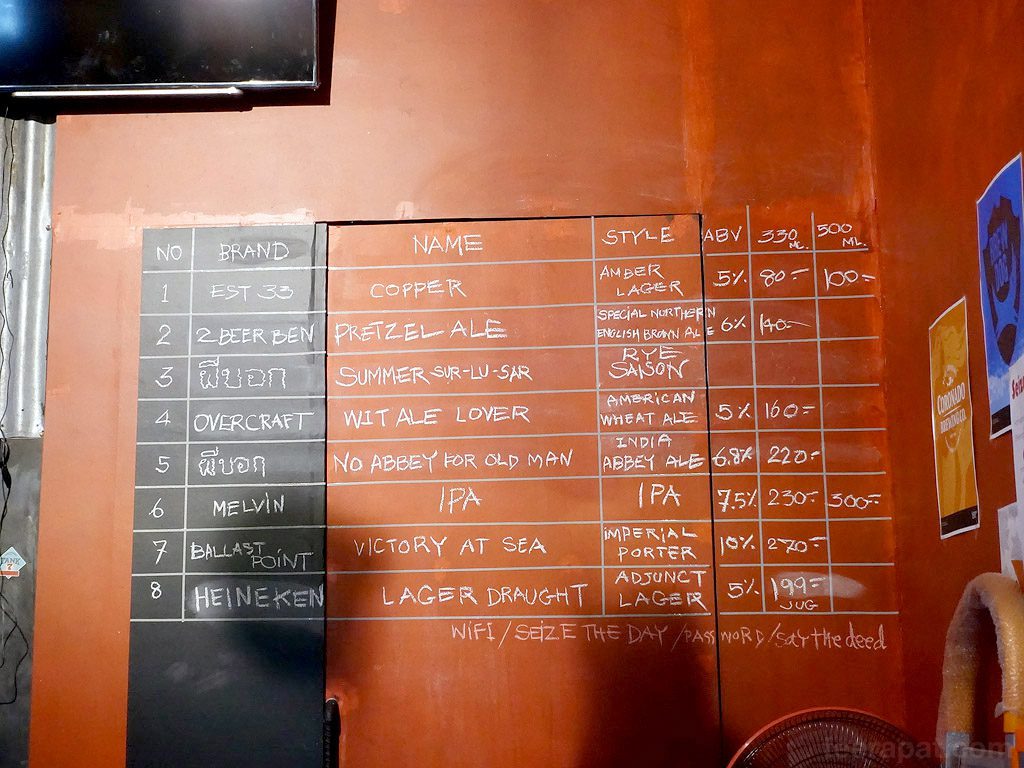 NO BRAND NAME STYLE ABV 330 ML. 500 ML.
1 EST 33 COPPER AMBER LAGER 5% 80- 100-
2 2 BEER BEN PRETZEL ALE SPECIAL NORTHERN ENGLISH BROWN ALE 6% 140-
3 ผีบอก SUMMER SUR-LU-SAR RYE SAISON
4 OVERCRAFT WIT ALE LOVER AMERICAN WHEAT ALE 5% 160-
5 ผีบอก NO ABBEY FOR OLD MAN INDIA ABBEY ALE 6.8% 220-
6 MELVIN IPA IPA 7.5% 230- 300-
7 BALLAST POINT VICTORY AT SEA IMPERIAL PORTER 10% 270-
8 HEINEKEN LAGER DRAUGHT ADJUNCT LAGER 5% 199- JUG
WIFI / SEIZE THE DAY / PASSWORD / Say the deed
CORONADO
BREWING CO.